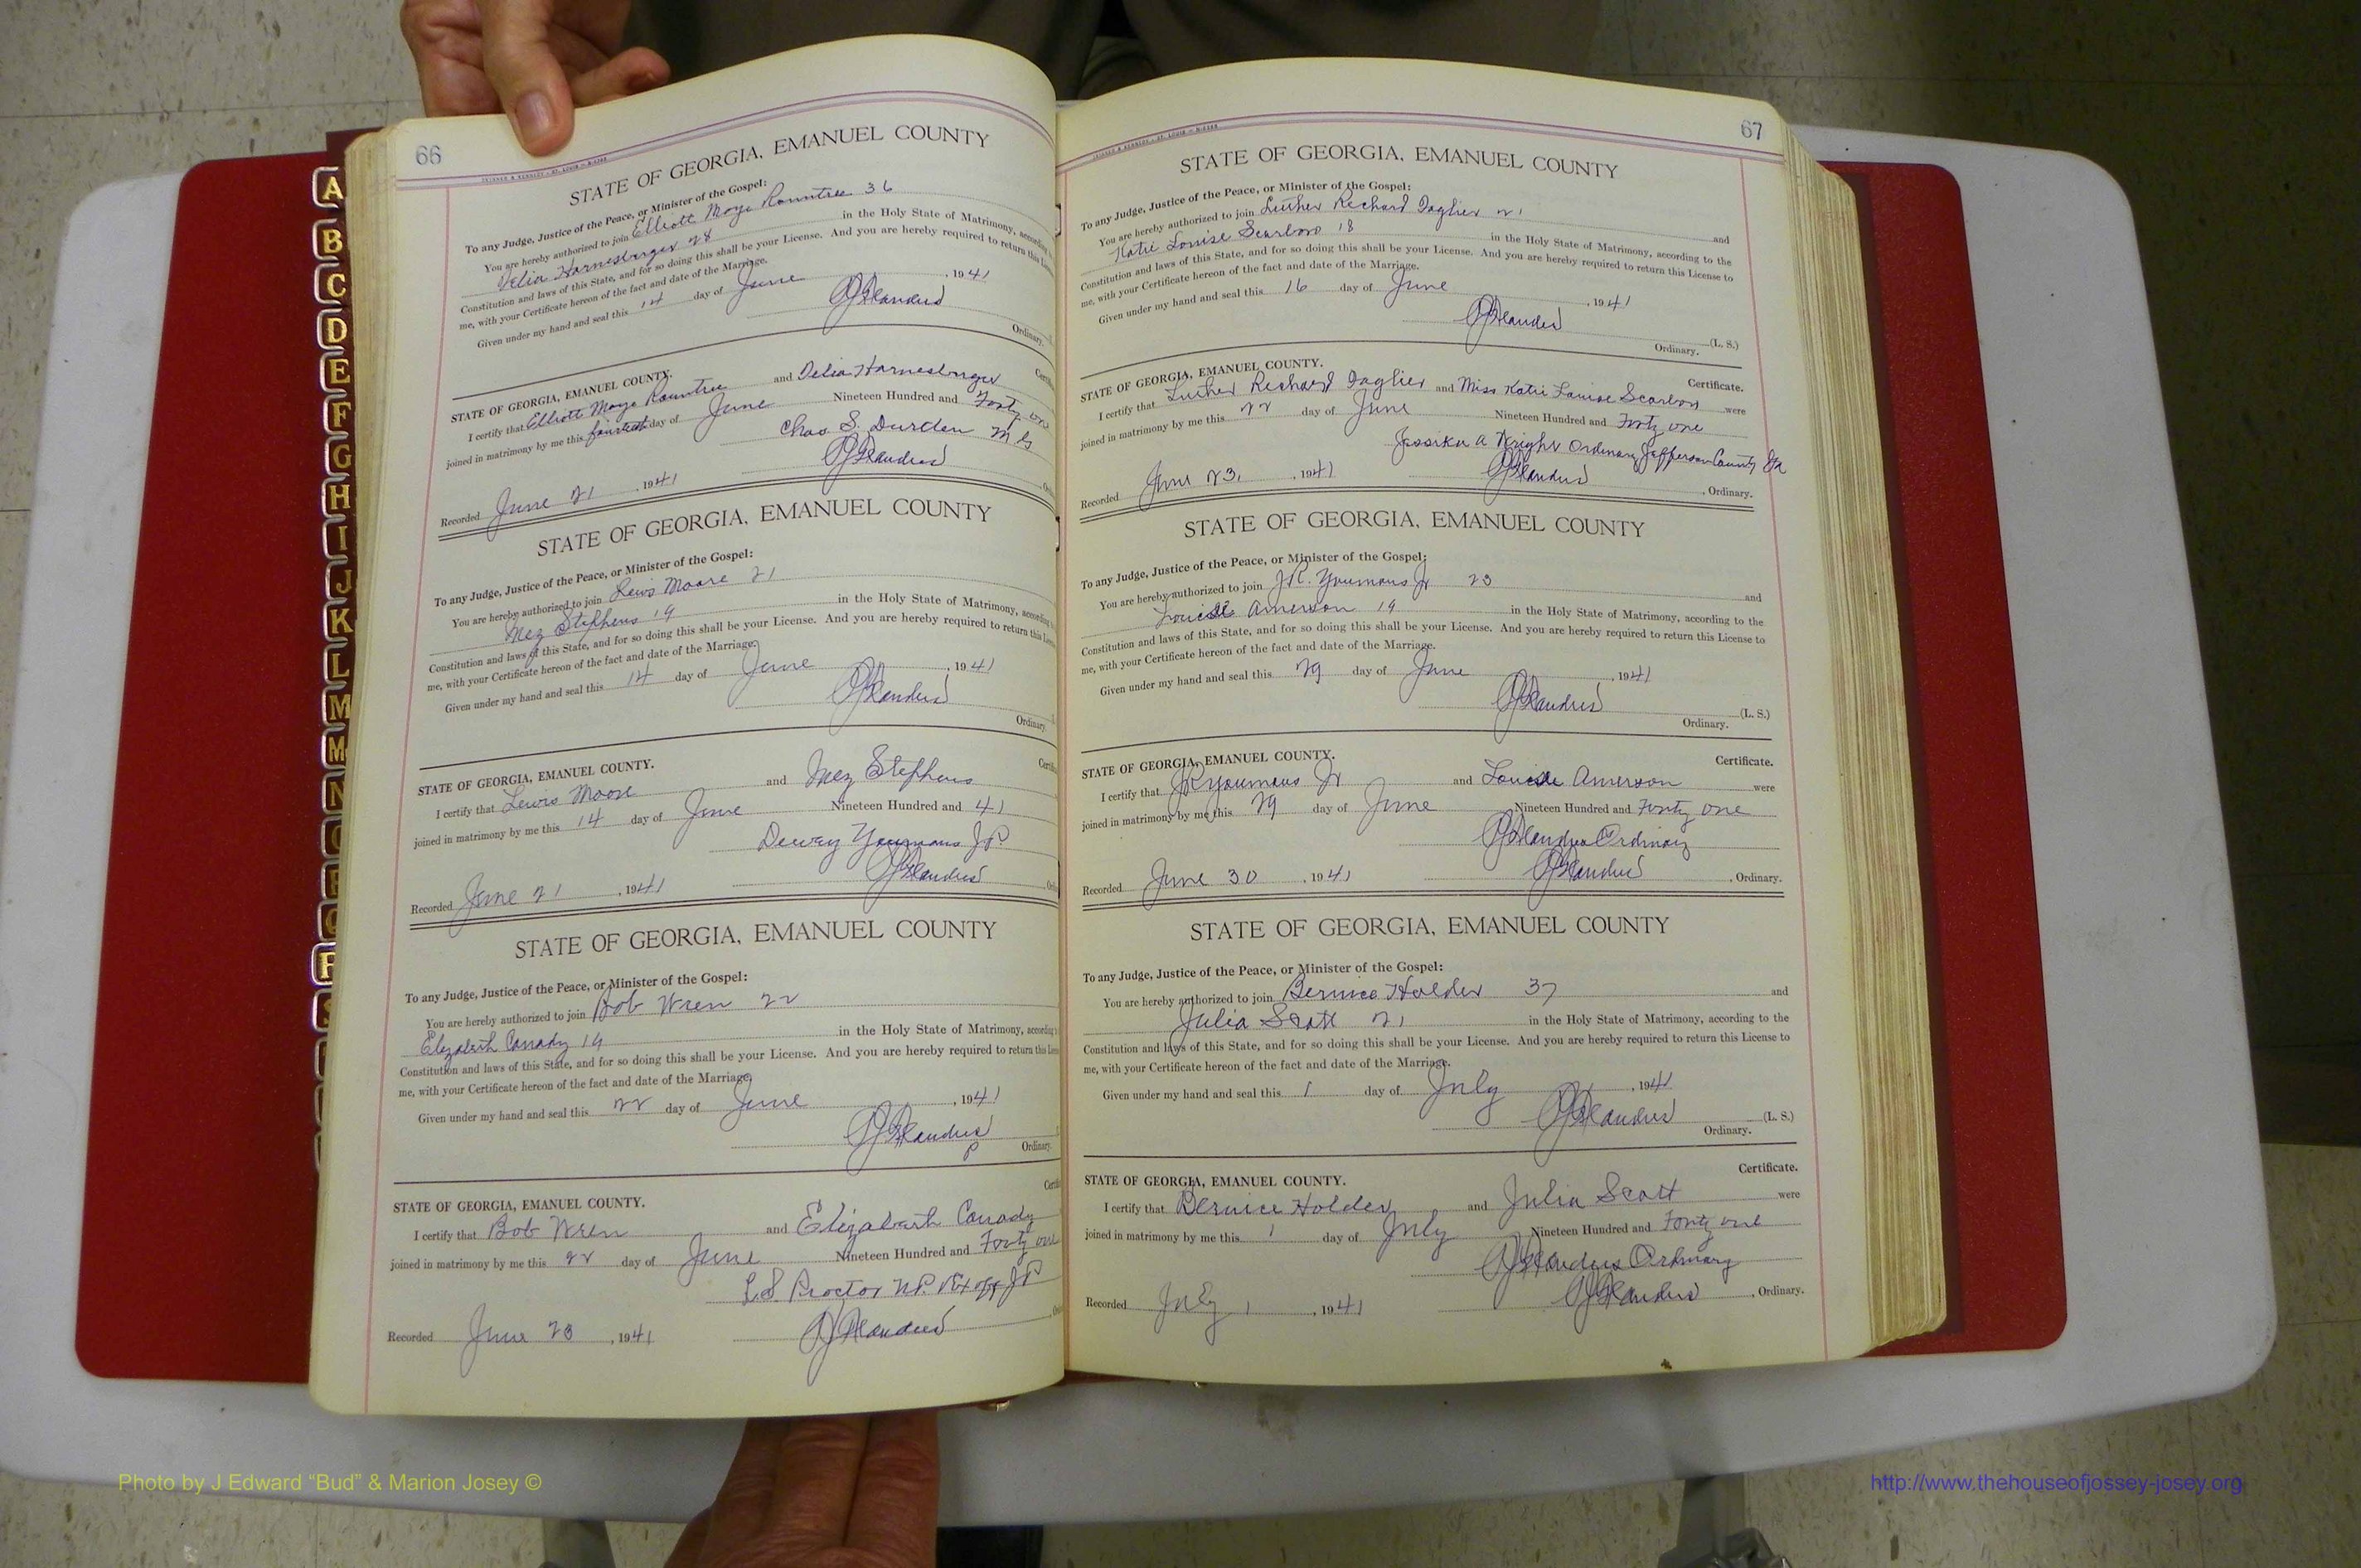 66
STATE OF GEORGIA, EMANUEL COUNTY
To any Judge, Justice of the Peace, or Minister of the Gospel:
You are hereby authorized to join Elliott Moye Rountree 36
Delia Harnesberger 28 in the Holy State of Matrimony, according
Constitution and laws of this State, and for so doing this shall be your License. And you are hereby required to return this
me, with your Certificate hereon of the fact and date of the Marriage.
Given under my hand and seal this 14 day of June, 1941
Ordinary.
STATE OF GEORGIA, EMANUEL COUNTY.
I certify that Elliott Moye Rountree and Delia Harnesberger
joined in matrimony by me this fourteenth day of June Nineteen Hundred and Forty one
Chas S. Durden M G
Recorded June 21, 1941
STATE OF GEORGIA, EMANUEL COUNTY
To any Judge, Justice of the Peace, or Minister of the Gospel:
You are hereby authorized to join Lewis Moore 21
Inez Stephens 19 in the Holy State of Matrimony, according
Constitution and laws of this State, and for so doing this shall be your License. And you are hereby required to return this
me, with your Certificate hereon of the fact and date of the Marriage.
Given under my hand and seal this 14 day of June, 1941
Ordinary.
STATE OF GEORGIA, EMANUEL COUNTY.
I certify that Lewis Moore and Inez Stephens
joined in matrimony by me this 14 day of June Nineteen Hundred and 41
Dewey Youmans J P
Recorded June 21, 1941
STATE OF GEORGIA, EMANUEL COUNTY
To any Judge, Justice of the Peace, or Minister of the Gospel:
You are hereby authorized to join Bob Wren 22
Elizabeth Canady 19 in the Holy State of Matrimony, according
Constitution and laws of this State, and for so doing this shall be your License. And you are hereby required to return this
me, with your Certificate hereon of the fact and date of the Marriage.
Given under my hand and seal this 22 day of June, 1941
Ordinary.
STATE OF GEORGIA, EMANUEL COUNTY.
I certify that Bob Wren and Elizabeth Canady
joined in matrimony by me this 22 day of June Nineteen Hundred and Forty one
L.S. Proctor N.P. & Ex off J P
Recorded June 23, 1941
67
STATE OF GEORGIA, EMANUEL COUNTY
To any Judge, Justice of the Peace, or Minister of the Gospel:
You are hereby authorized to join Luther Richard Daglier 21 and
Katie Louise Scarboro 18 in the Holy State of Matrimony, according to the
Constitution and laws of this State, and for so doing this shall be your License. And you are hereby required to return this License to
me, with your Certificate hereon of the fact and date of the Marriage.
Given under my hand and seal this 16 day of June, 1941
(L. S.)
Ordinary.
STATE OF GEORGIA, EMANUEL COUNTY. Certificate.
I certify that Luther Richard Daglier and Miss Katie Louise Scarboro were
joined in matrimony by me this 22 day of June Nineteen Hundred and Forty one
A Wright Ordinary Jefferson County Ga
Recorded June 23, 1941 , Ordinary.
STATE OF GEORGIA, EMANUEL COUNTY
To any Judge, Justice of the Peace, or Minister of the Gospel:
You are hereby authorized to join J.R. Youmans Jr 23 and
Amerson 19 in the Holy State of Matrimony, according to the
Constitution and laws of this State, and for so doing this shall be your License. And you are hereby required to return this License to
me, with your Certificate hereon of the fact and date of the Marriage.
Given under my hand and seal this 29 day of June, 1941
(L. S.)
Ordinary.
STATE OF GEORGIA, EMANUEL COUNTY. Certificate.
I certify that JR Youmans Jr and Amerson were
joined in matrimony by me this 29 day of June Nineteen Hundred and Forty one
Ordinary
Recorded June 30, 1941 , Ordinary.
STATE OF GEORGIA, EMANUEL COUNTY
To any Judge, Justice of the Peace, or Minister of the Gospel:
You are hereby authorized to join Bernice Holder 37 and
Julia Scott 21 in the Holy State of Matrimony, according to the
Constitution and laws of this State, and for so doing this shall be your License. And you are hereby required to return this License to
me, with your Certificate hereon of the fact and date of the Marriage.
Given under my hand and seal this 1 day of July, 1941
(L. S.)
Ordinary.
STATE OF GEORGIA, EMANUEL COUNTY. Certificate.
I certify that Bernice Holder and Julia Scott were
joined in matrimony by me this 1 day of July Nineteen Hundred and Forty one
Ordinary
Recorded July 1, 1941 , Ordinary.
A
B
C
D
E
F
G
H
I
J
K
L
M
M
N
Photo by J Edward “Bud” & Marion Josey ©
http://www.thehouseofjossey-josey.org